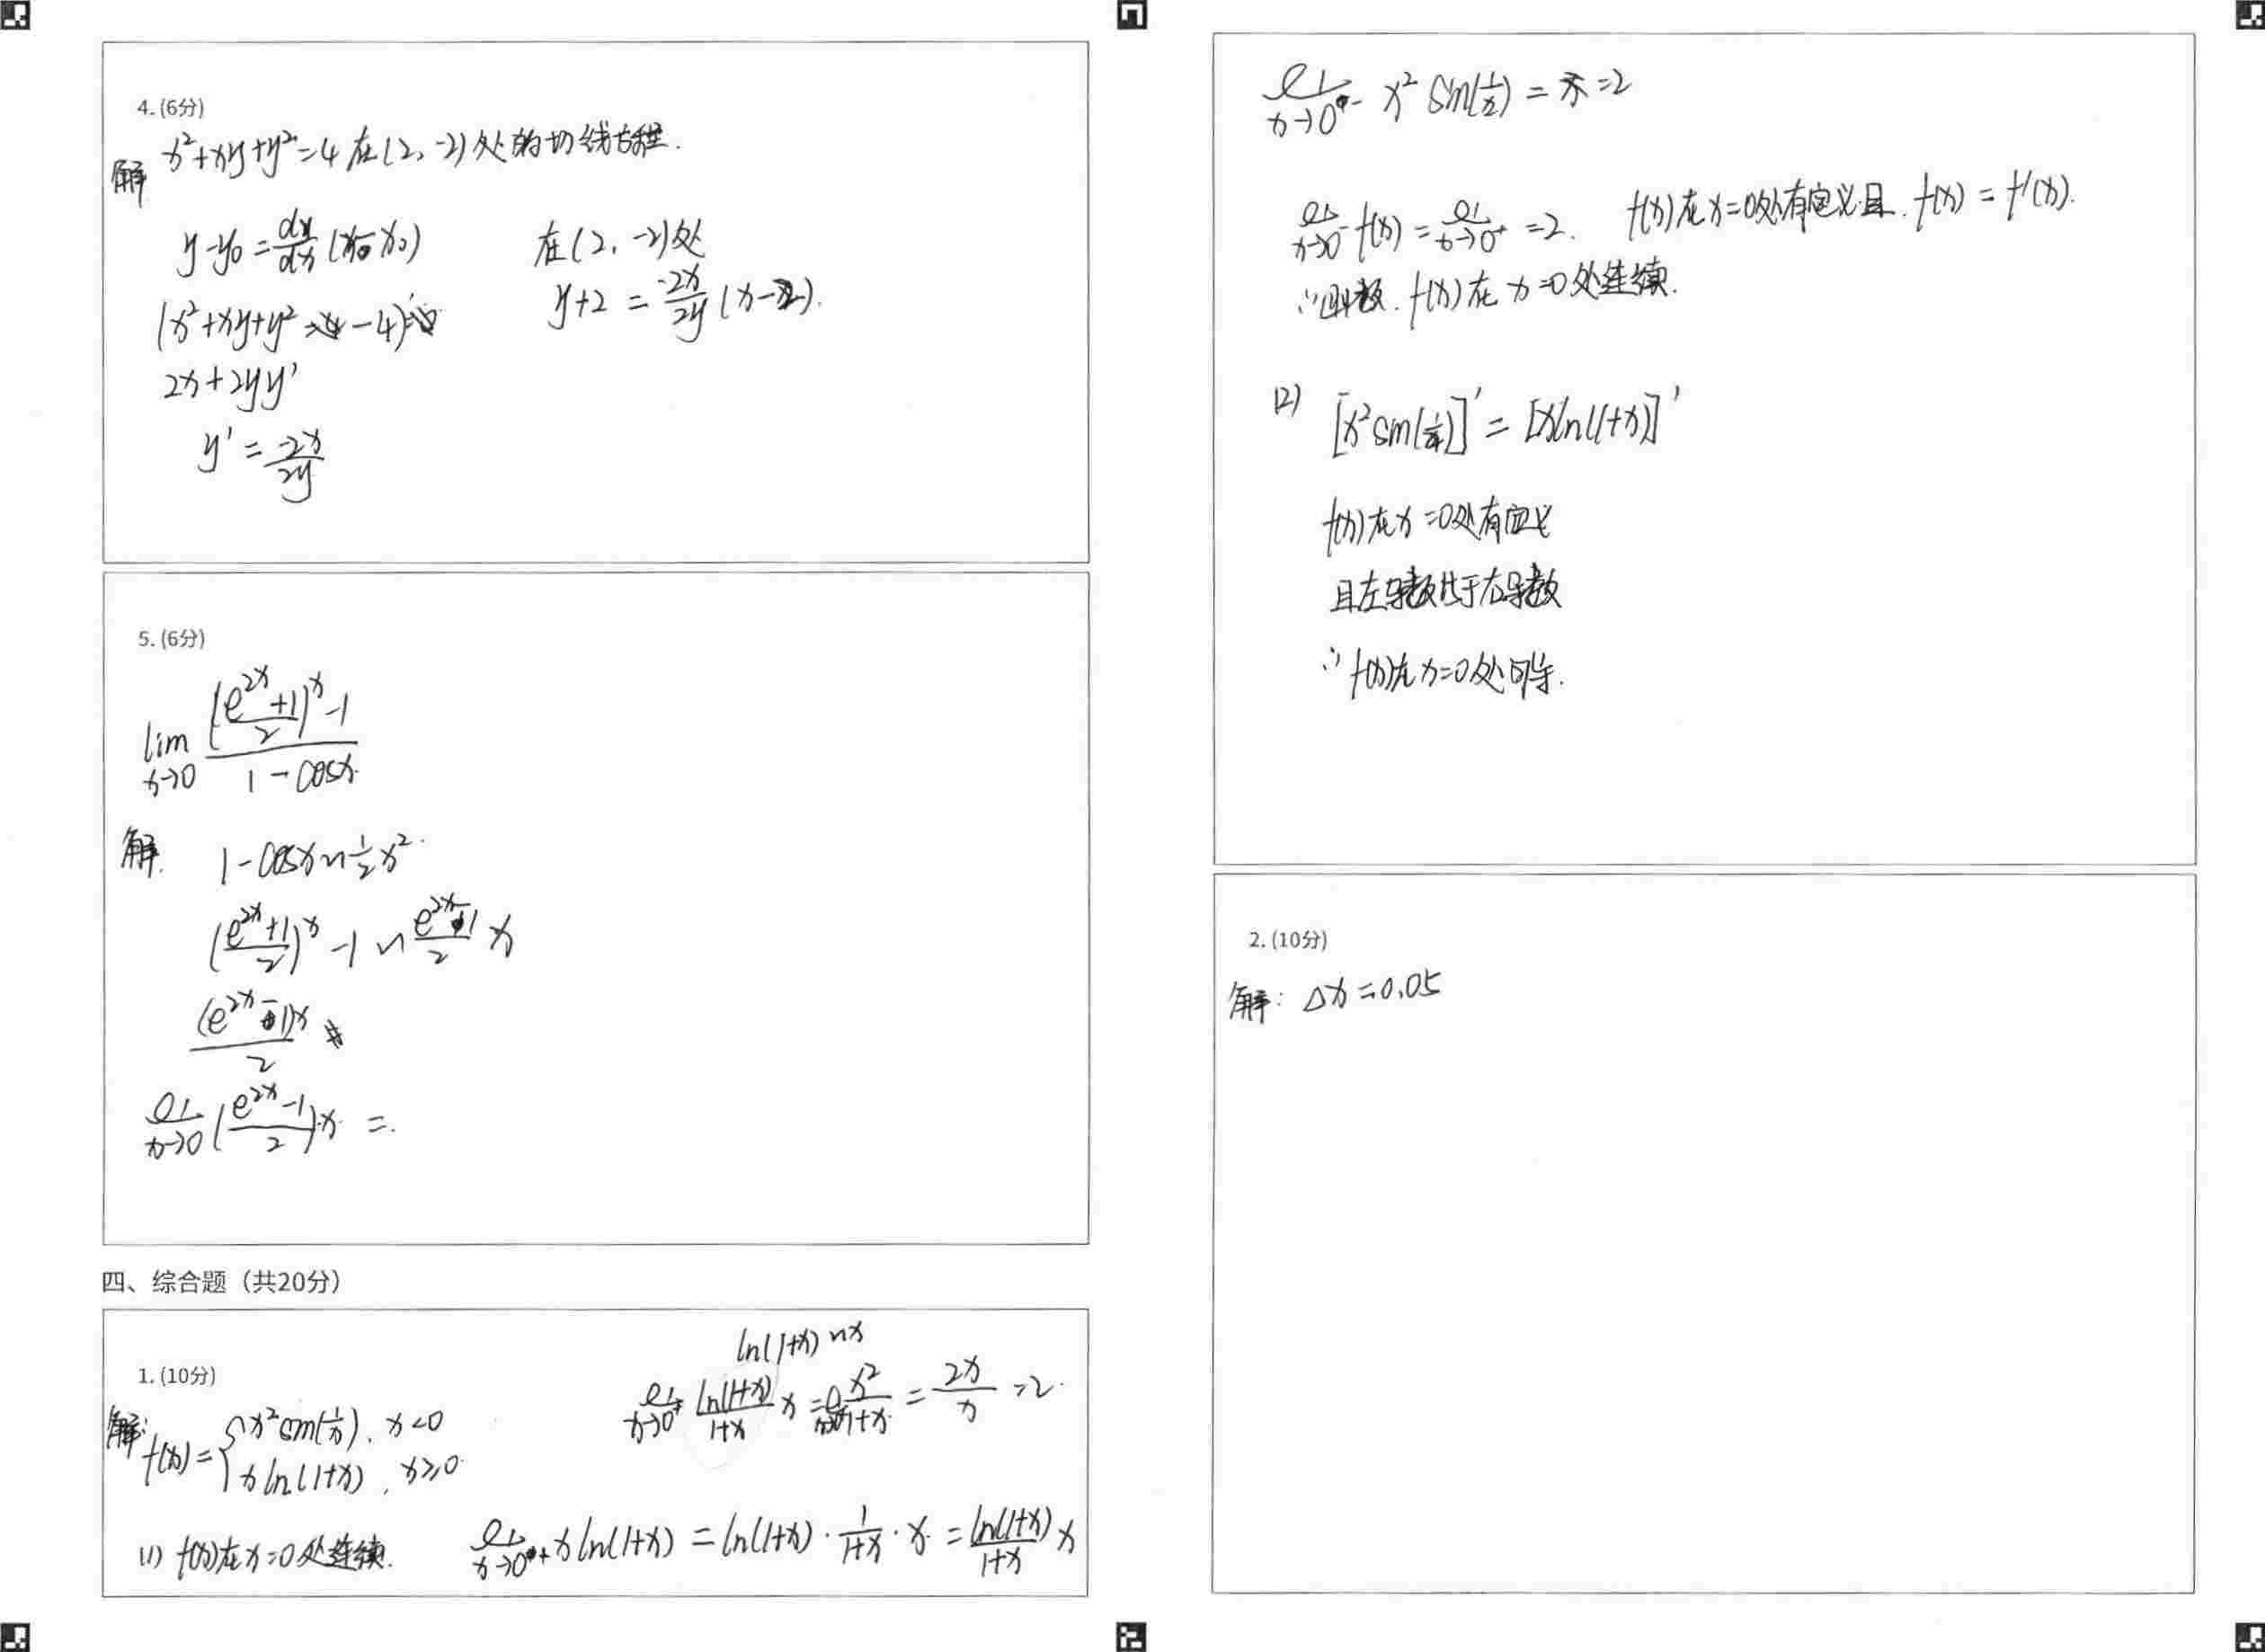 4. (6分)
解 x²+xy+y²=4 在(2, -2)处的切线方程.
y-y₀=dy/dx(x-x₀)
(x²+xy+y²-4)'
2x+2yy'
y'=-2x/2y
在(2, -2)处
y+2=-2x/2y(x-2).
5. (6分)
lim x→0 [((e^{2x}+1)/2)^x-1]/(1-cosx)
解. 1-cosx~½x².
((e^{2x}+1)/2)^x-1~(e^{2x}-1)/2 x
(e^{2x}-1)x/2
lim x→0 ((e^{2x}-1)/2)x =.
四、综合题（共20分）
1. (10分)
解: f(x)={x²sin(1/x), x<0
xln(1+x), x≥0.
(1) f(x)在x=0处连续.
lim x→0⁺ xln(1+x)=ln(1+x)·1/(1+x)·x=ln(1+x)/(1+x) x
ln(1+x)~x
lim x→0⁺ ln(1+x)/(1+x) x=x²/(1+x)=2x/x=2.
lim x→0⁻ x²sin(1/x)==2
lim x→0⁻ f(x)=lim x→0⁺=2. f(x)在x=0处有定义且. f(x)=f'(x).
∴函数. f(x)在x=0处连续.
(2) [x²sin(1/x)]'=[xln(1+x)]'
f(x)在x=0处有定义
且左导数等于右导数
∴f(x)在x=0处可导.
2. (10分)
解: Δx=0.05